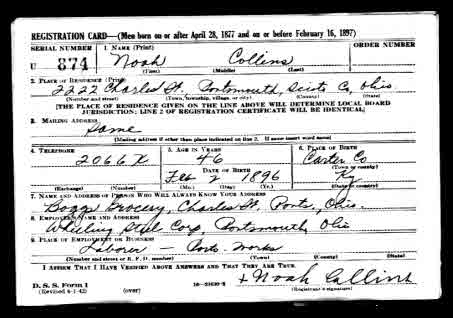 REGISTRATION CARD—(Men born on or after April 28, 1877 and on or before February 16, 1897)
SERIAL NUMBER 1. NAME (Print) ORDER NUMBER
U 874 Noah Collins
(First) (Middle) (Last)
2. PLACE OF RESIDENCE (Print)
2222 Charles St. Portsmouth, Scioto Co, Ohio
(Number and street) (Town, township, village, or city) (County) (State)
[THE PLACE OF RESIDENCE GIVEN ON THE LINE ABOVE WILL DETERMINE LOCAL BOARD
JURISDICTION; LINE 2 OF REGISTRATION CERTIFICATE WILL BE IDENTICAL]
3. MAILING ADDRESS
Same
[Mailing address if other than place indicated on line 2. If same insert word same]
4. TELEPHONE 5. AGE IN YEARS 6. PLACE OF BIRTH
2066X 46 Carter Co
DATE OF BIRTH (Town or county)
Feb 2 1896 Ky
(Exchange) (Number) (Mo.) (Day) (Yr.) (State or country)
7. NAME AND ADDRESS OF PERSON WHO WILL ALWAYS KNOW YOUR ADDRESS
Boggs Grocery, Charles St. Ports, Ohio.
8. EMPLOYER'S NAME AND ADDRESS
Wheeling Steel Corp, Portsmouth, Ohio
9. PLACE OF EMPLOYMENT OR BUSINESS
Laborer — Ports. Works
(Number and street or R. F. D. number) (Town) (County) (State)
I AFFIRM THAT I HAVE VERIFIED ABOVE ANSWERS AND THAT THEY ARE TRUE.
D. S. S. Form 1
(Revised 4-1-42) (over) + Noah Collins
(Registrant's signature)